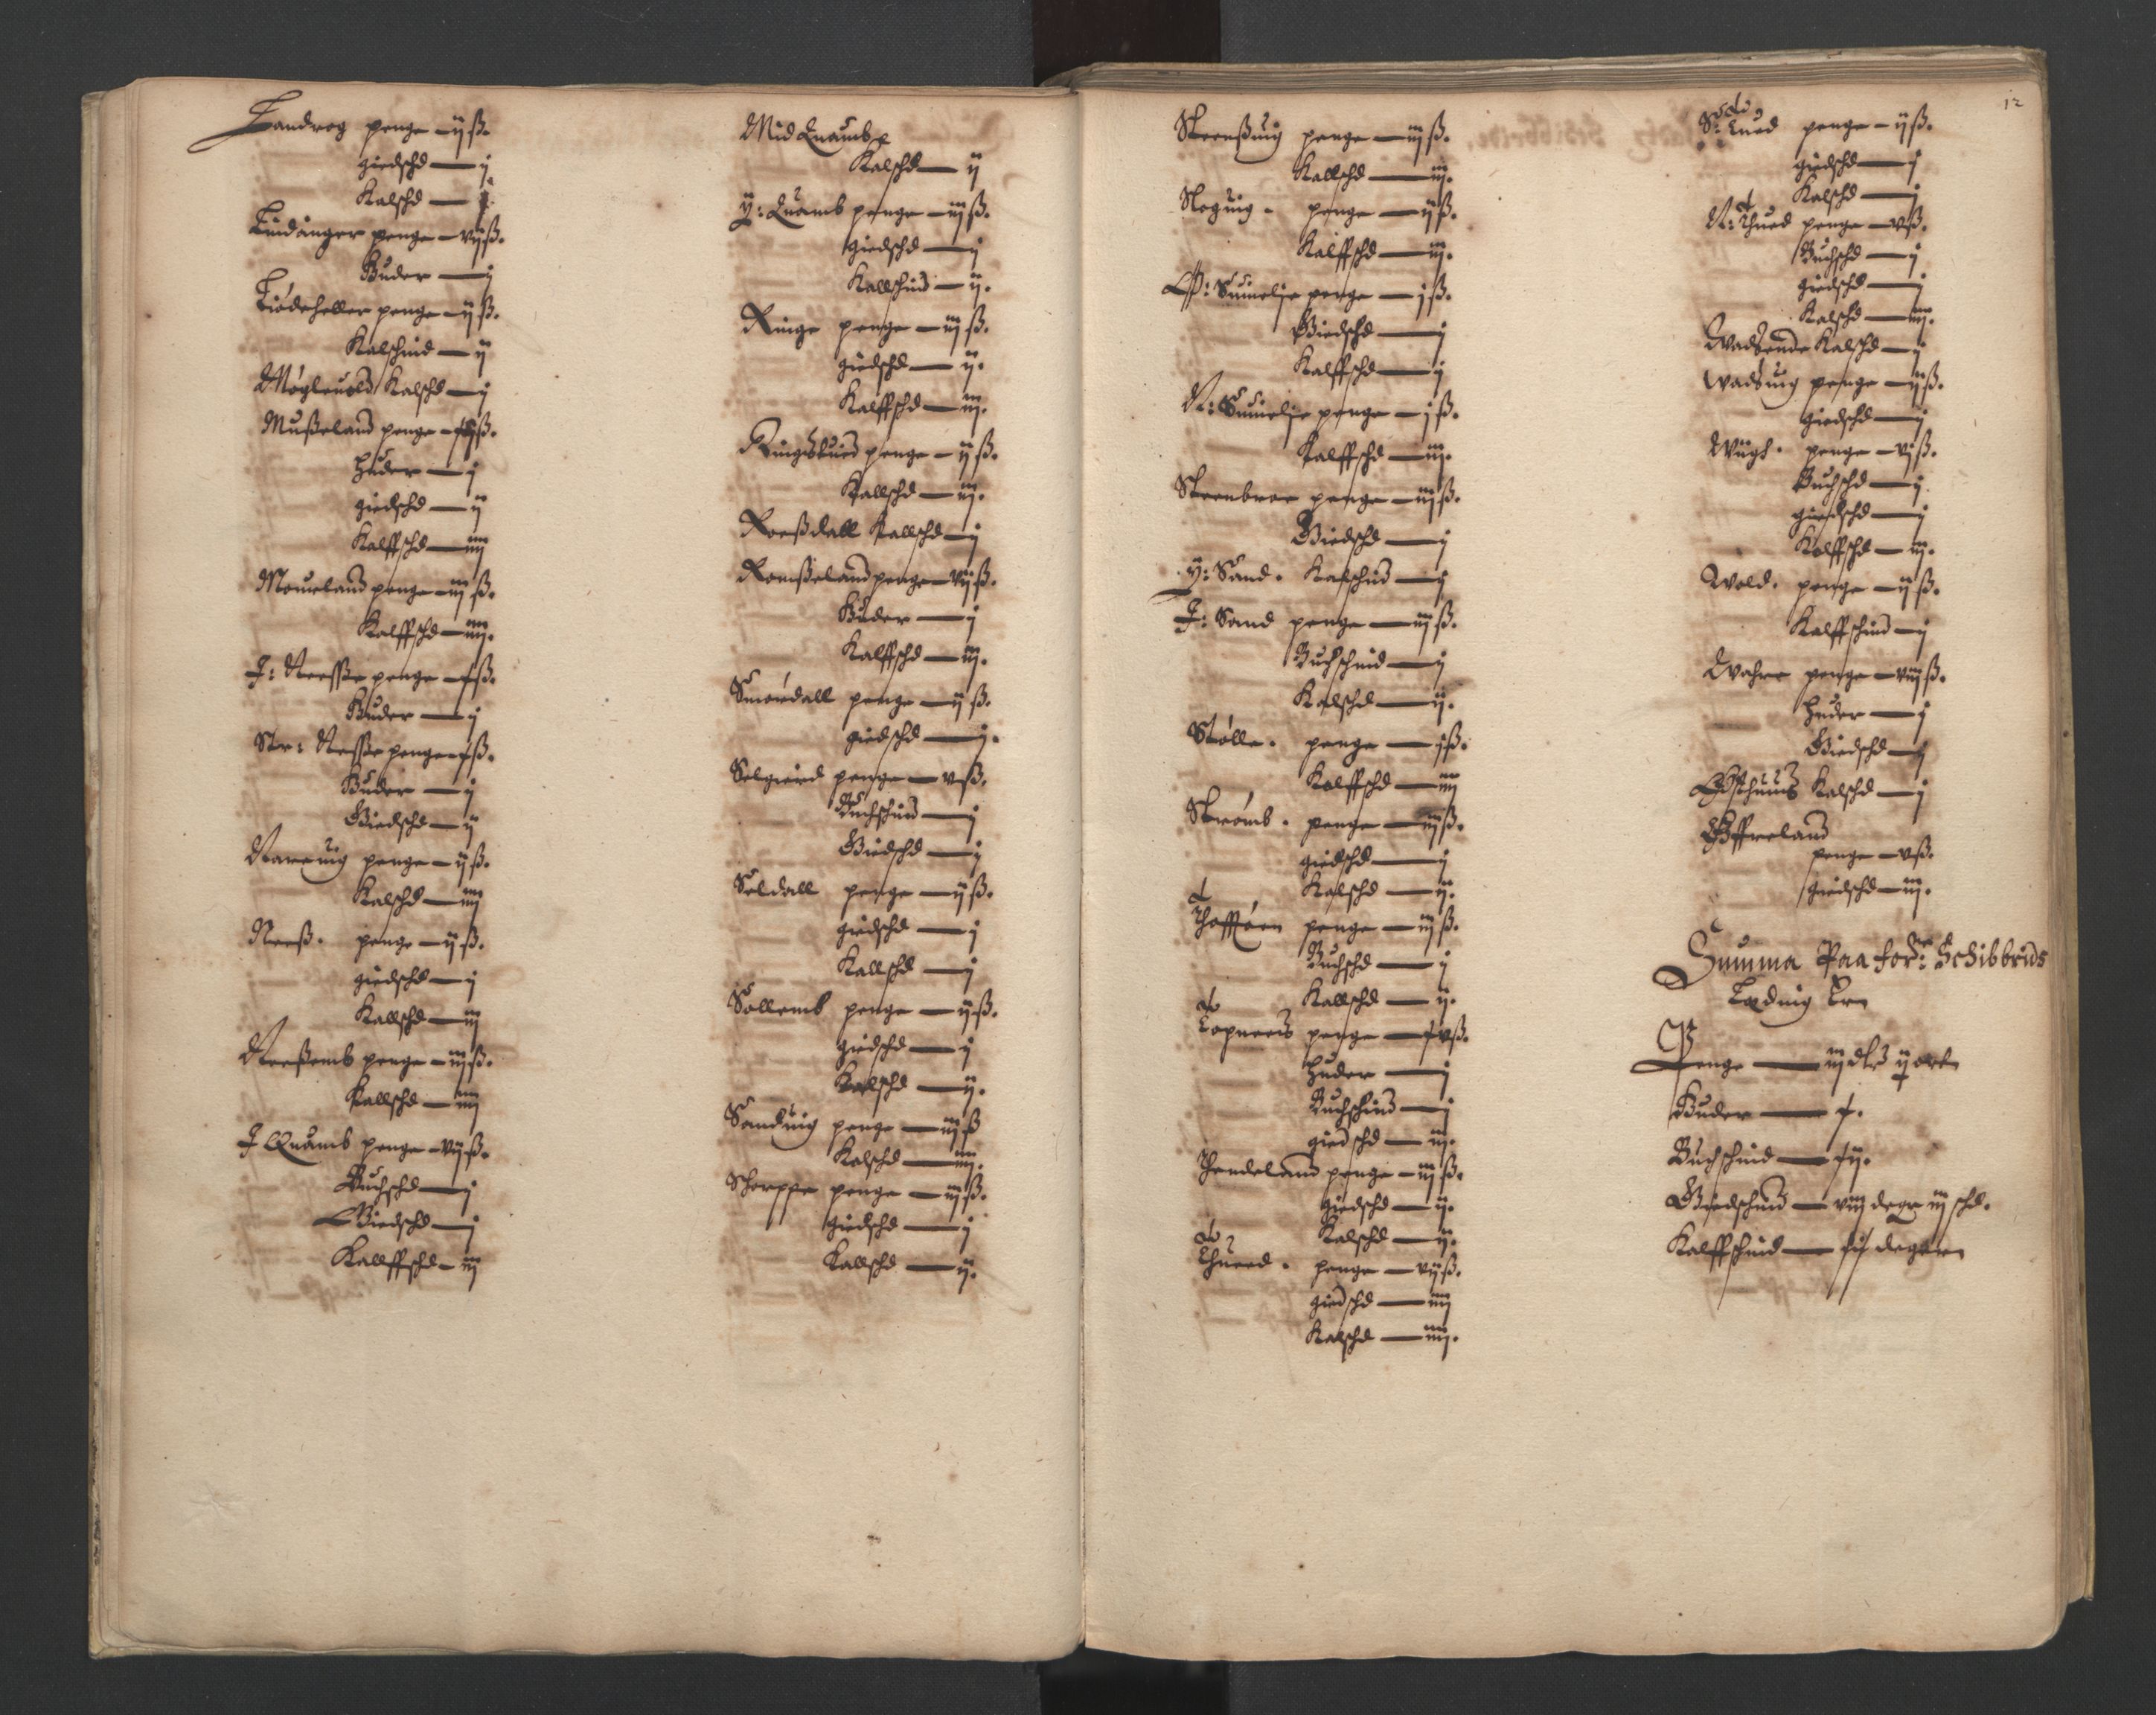 Landrog penge — ij ß.
giedschd — j
Kalschd — j.
Lindanger penge — vij ß.
Huder — j
Liødeheller penge — ij ß.
Kalschind — ij
Møgleuold Kalschd — j
Mußeland penge — ß.
Huder — j
giedschd — ij
Kalffschd — iiij
Moueland penge — iij ß.
Kalffschd — iiij.
J: Neesse penge — x ß.
Huder — j
Str: Nesse penge x ß.
Huder — j
Giedschd — ij
Nareuig penge — ij ß.
Kalschd — iiij
Neeß. penge — ij ß.
giedschd — j
Kallschd — iij
Neeßemb penge — iij ß.
Kallschd — iiij
J Quamb penge — vij ß.
Buchschd — j
Giedschd — j
Kallffschd — iij
Mid Quamb
Kalschd — ij
Y: Quamb penge — iij ß.
giedschd — j
Kallschind — ij.
Ringe penge — iij ß.
giedschd — ij.
Kalffschd — iij.
Ringsbued penge — ij ß.
Kallschd — iij.
Roeßdall Kallschd — j
Romßeland penge — vij ß.
Huder — j
Kalffschd — iij.
Smördall penge — ij ß.
giedschd — j.
Selgierd penge — v ß.
Buchschind — j
Giedschd — j
Seldall penge — ij ß.
giedschd — j
Kallschd — j
Sollemb penge — ij ß.
giedschd — j
Kalschd — ij.
Sanduig penge — iij ß
Kalschd — iiij.
Skorppe penge — iij ß.
giedschd — j
Kallschd — ij.
12
Steenßuig penge — iij ß.
Kallschd — iij.
Noguig. penge — ij ß.
Kalffschd — iij.
Ø: Suinelie penge — j ß.
Giedschd — j
Kalffschd — j
N: Suinelie penge — j ß.
Kalffschd — iij.
Steenbroe penge — iij ß.
Giedschd — j
Y: Sand. Kalschind — ij
J: Sand penge — iij ß.
Buchschind — j
Kalschd — ij.
Stølle. penge — j ß.
Kalffschd — iiij
Strömb. penge — iij ß.
giedschd — j
Kalschd — ij.
Thofftöen penge — iij ß.
Buchschd — j
Kallschd — ij.
Topnees penge — xv ß.
Huder — j
Buchschind — j
giedschd — iij.
Thendeland penge — iij ß.
giedschd — ij.
Kalschd — ij.
Thueed. penge — vij ß.
giedschd — iiij
Kalschd — iiij.
S: Tued penge — ij ß.
giedschd — j
Kalschd — j
N: Thued penge — v ß.
Buchschd — j
giedschd — j
Kalschd — iiij.
Wadbende Kalschd — j
Waduig penge — ij ß.
giedschd — j
Wiigh. penge — vj ß.
Buchschd — j.
giedschd — j
Kalffschd — iij.
Wold. penge — ij ß.
Kalffschind — j
Wahre penge — viij ß.
Huder — j
Giedschd — j
Østhuus Kalschd — j
Øffreland
penge — v ß.
giedschd — iij.
Summa Paa for:ne Schibbrids
Leding Er
Penge — iij dlr ij ort
Huder — x.
Buchschind — xij.
Giedschind — viij deger iij schd.
Kalffschind — deger